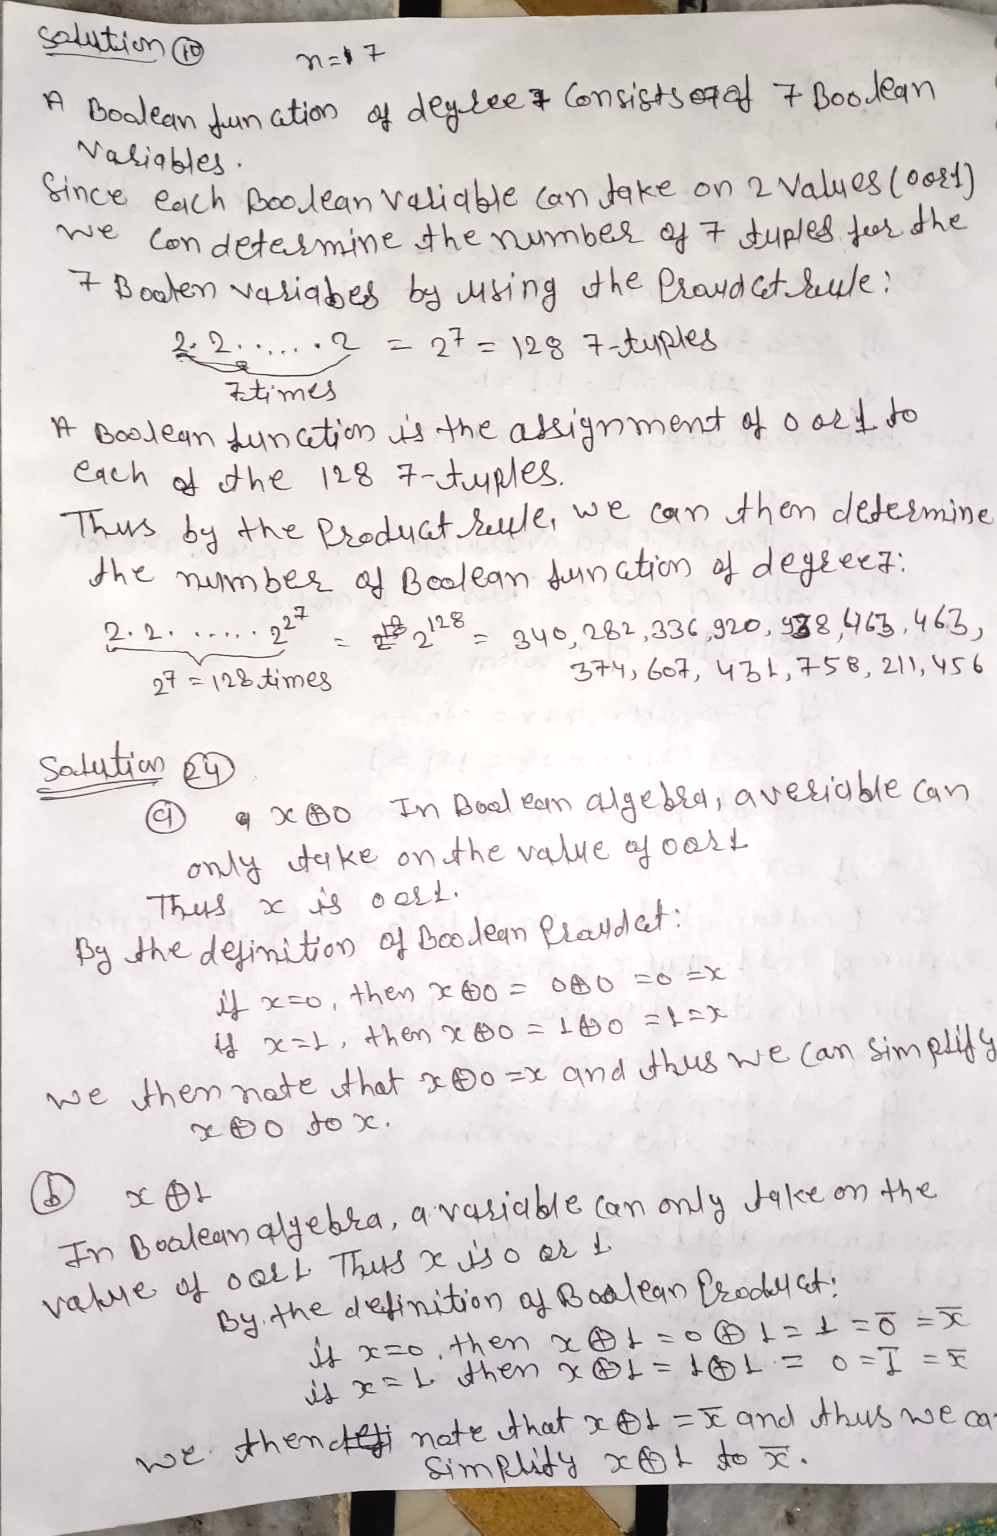 Solution ⑩
n=7
A Boolean function of degree 7 Consists of 7 Boolean
Variables.
Since each Boolean Variable can take on 2 Values (0 or 1)
we Can determine the number of 7 tuples for the
7 Boolen variabes by using the Proudct Rule:
2. 2. ..... . 2 = 2⁷ = 128 7-tuples
7 times
A Boolean function is the assignment of 0 or 1 to
each of the 128 7-tuples.
Thus by the Product Rule, we can then determine
the number of Boolean function of degree 7:
2. 2. ..... . 2^2^7 = 2^128 = 340, 282, 336, 920, 938, 463, 463,
2⁷ = 128 times
374, 607, 431, 758, 211, 456
Solution ㉔
ⓐ x ⊕ 0 In Boolean algebra, a veriable can
only take on the value of 0 or 1
Thus x is 0 or 1.
By the definition of Boolean Proudct:
if x=0, then x ⊕ 0 = 0 ⊕ 0 = 0 = x
if x=1, then x ⊕ 0 = 1 ⊕ 0 = 1 = x
we then note that x ⊕ 0 = x and thus we can simplify
x ⊕ 0 to x.
ⓑ x ⊕ 1
In Boolean algebra, a variable can only take on the
value of 0 or 1 Thus x is 0 or 1
By the definition of Boolean Product:
if x=0, then x ⊕ 1 = 0 ⊕ 1 = 1 = 0̅ = x̅
if x=1 then x ⊕ 1 = 1 ⊕ 1 = 0 = 1̅ = x̅
we then note that x ⊕ 1 = x̅ and thus we ca
Simplify x ⊕ 1 to x̅.